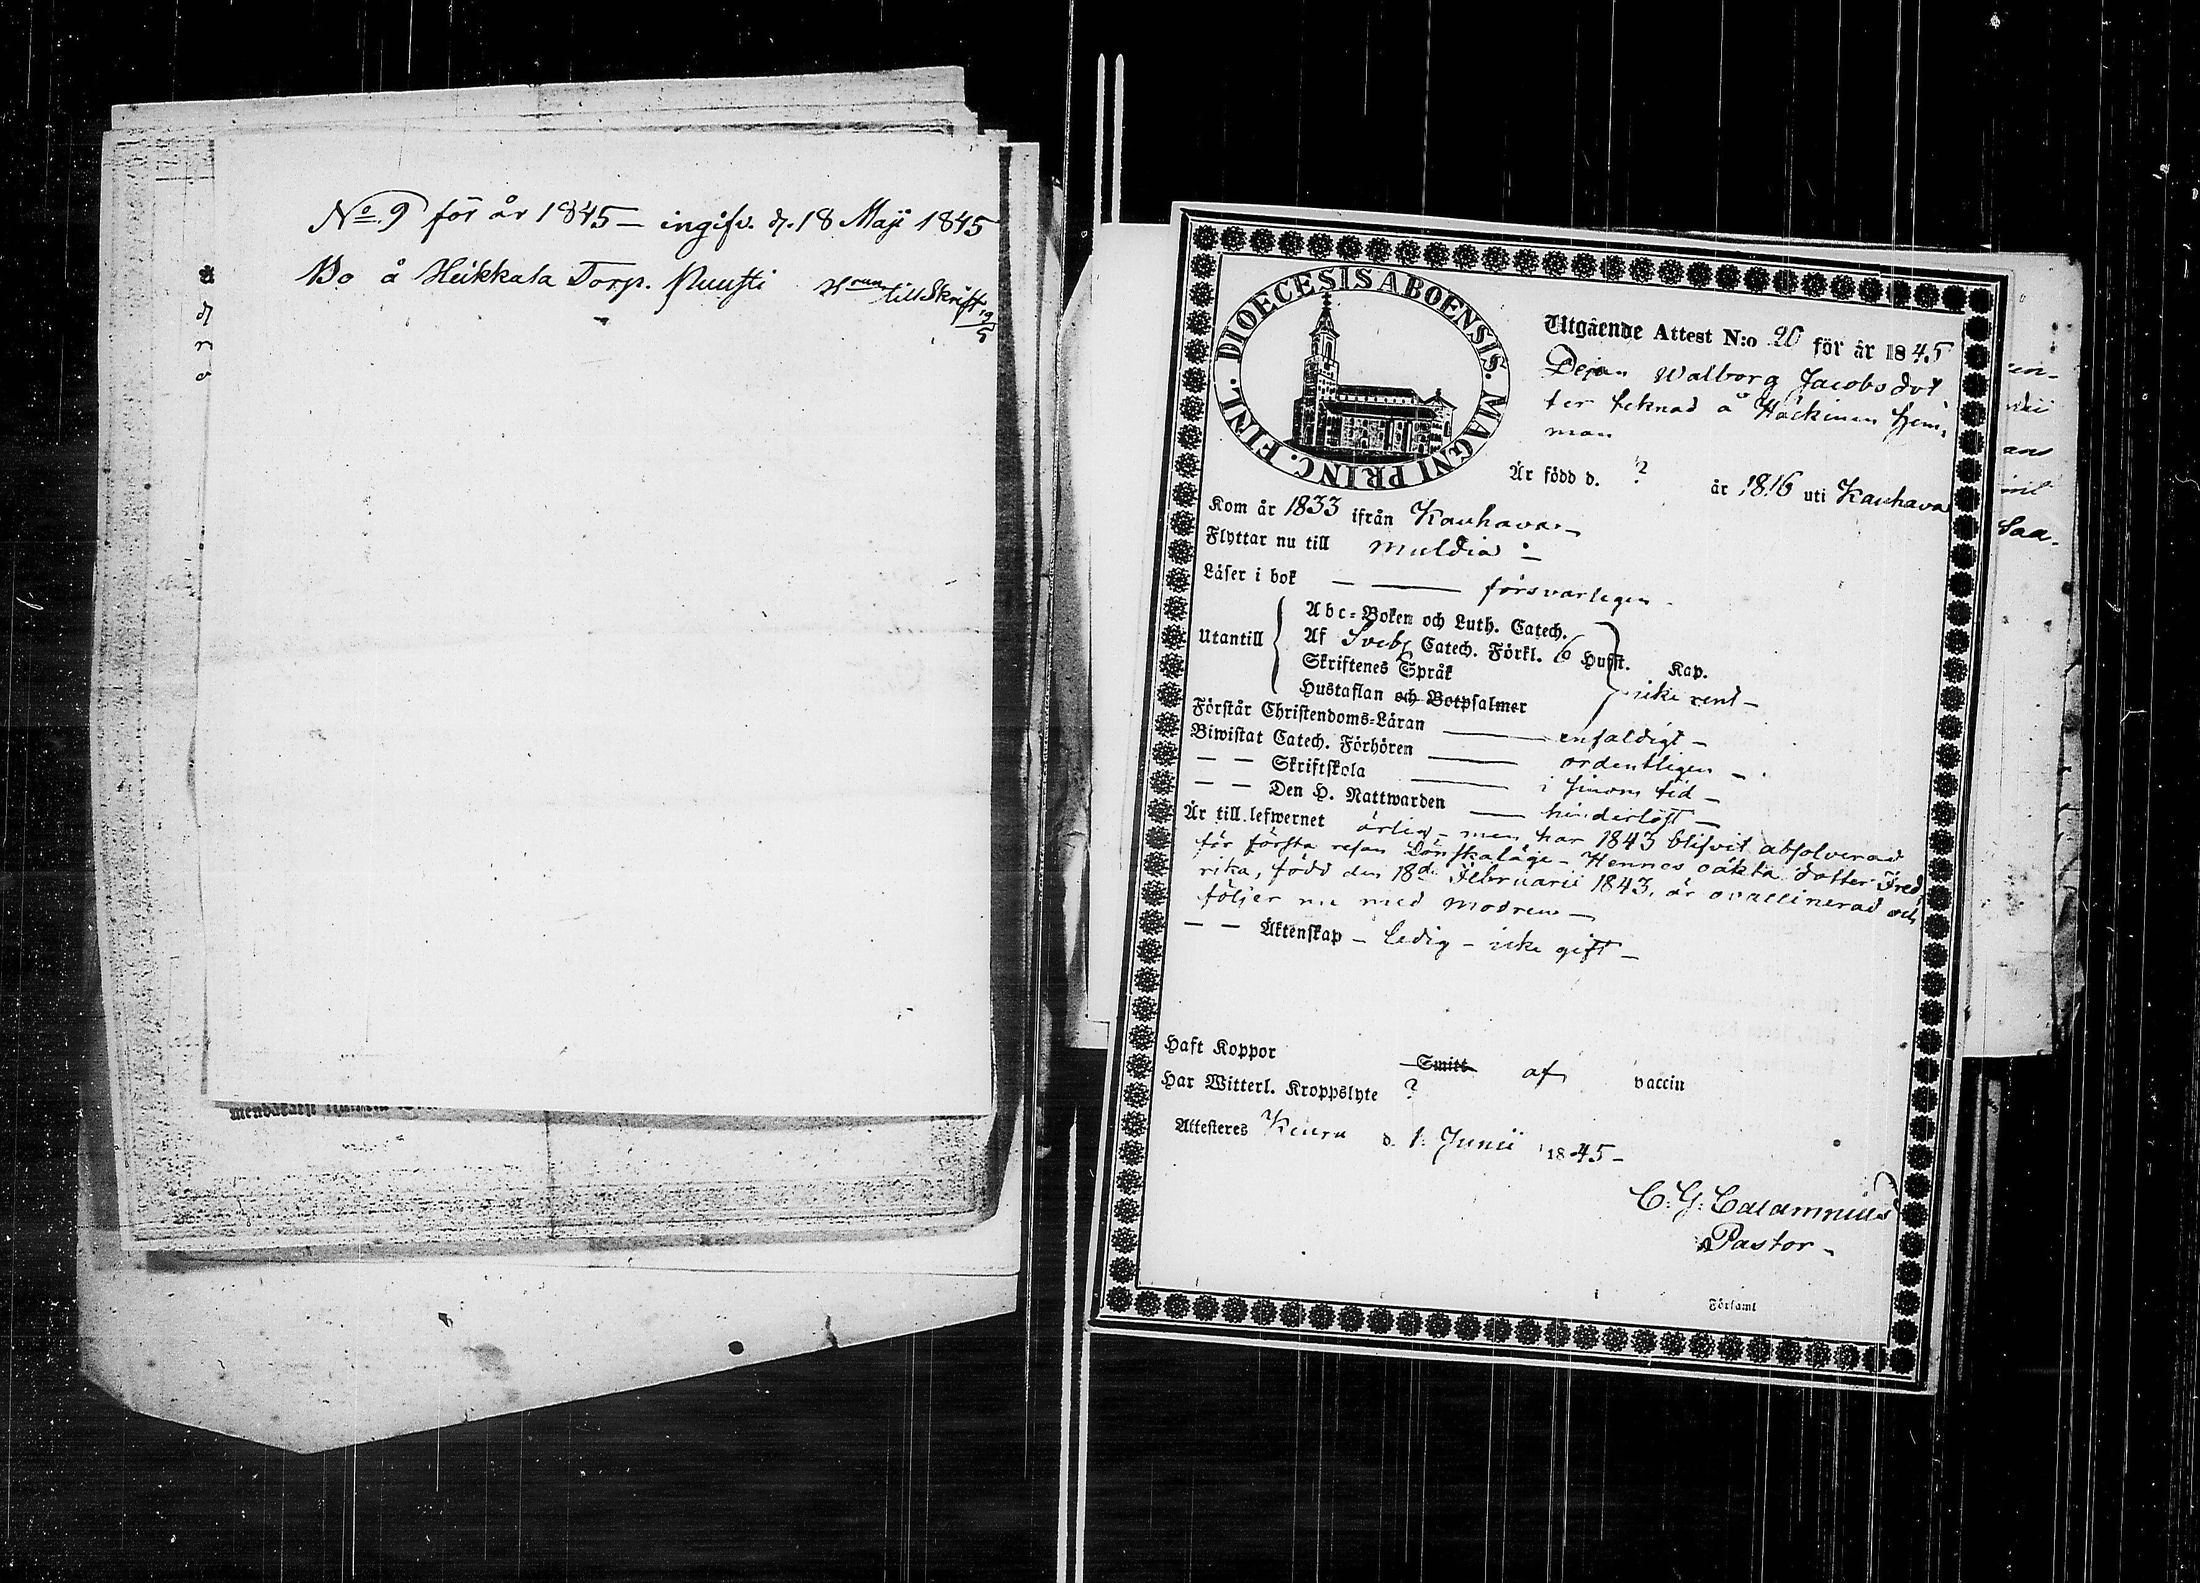 No 9 för år 1845 — ingifv. d. 18 Maji 1845
Bo å Heikkala Torp. Nuusti till Skrift 19/5
DIOECESIS ABOENSIS. MAGNI PRINC. FINL.
Utgående Attest N:o 20 för år 1845
Dejan Walborg Jacobs dot
ter teknad å Häckinen hem,
man
Är född d. ? år 1816 uti Kauhava
Kom år 1833 ifrån Kauhava —
Flyttar nu till Muldia —
Läser i bok — — försvarligen
Utantill
Abc-Boken och Luth. Catech.
Af Sveb. Catech. Förkl. 6 Hufst. Kap.
Skriftenes Språk
Hustaflan och Botpsalmer
icke rent —
Förstår Christendoms-Läran — enfaldigt —
Biwistat Catech. Förhören — ordentligen —
— — Skriftskola — i sinom tid —
— — Den H. Nattwarden — hinderlöst —
Är till lefwernet ärlig — men har 1843 blifvit absolverad
för första resan Lönskaläge — Hennes oäkta dotter Fred
rika, född den 18de Februarii 1843, är ovaccinerad och
följer nu med modren —
— — Äktenskap — ledig — icke gift —
Haft Koppor Smitt af vaccin
Har Witterl. Kroppslyte ?
Attesteres Keuru d. 1. Junii 1845 —
C. G. Calamnius
Pastor —
Församl